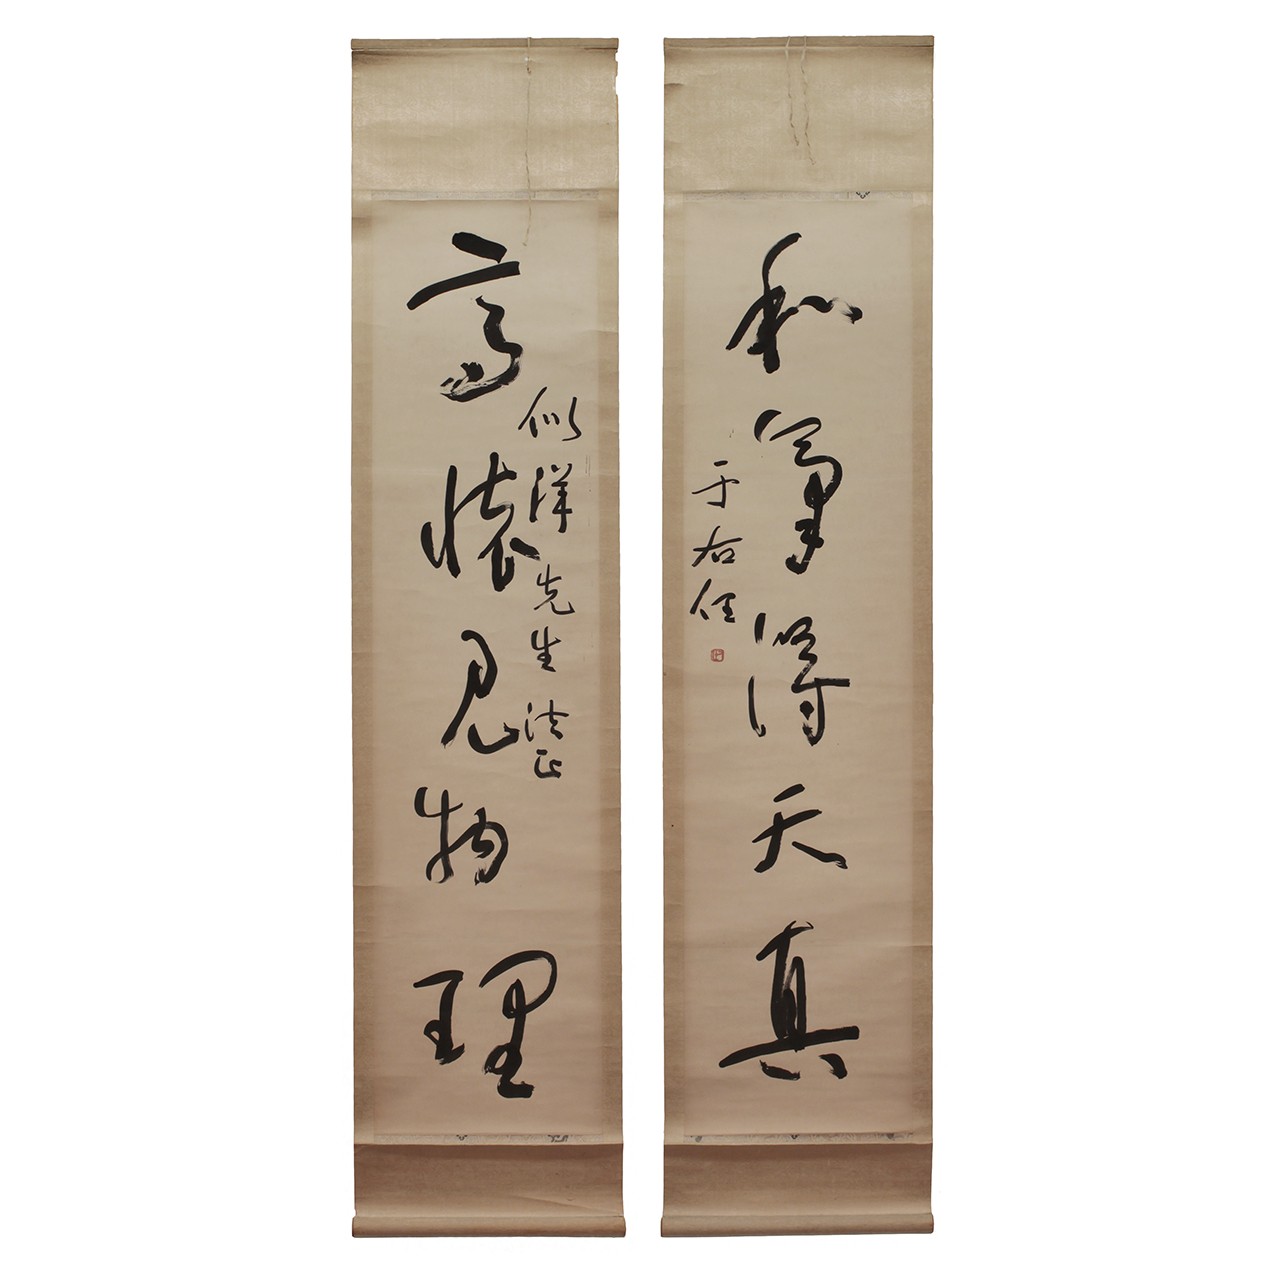 似洋先生法正
高懷見物理
和氣得天真
于右任